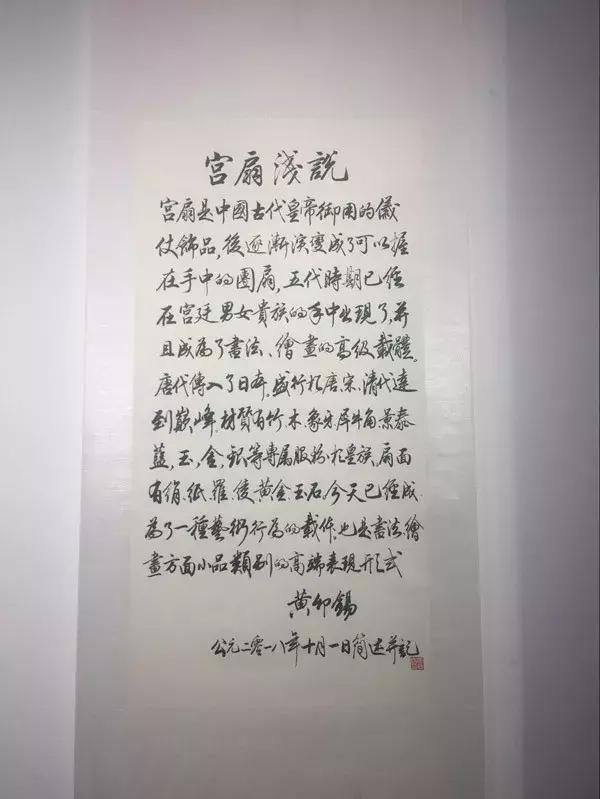 宫扇淺說
宫扇是中國古代皇帝御用的儀
仗飾品,後逐漸演變成了可以握
在手中的團扇,五代時期已經
在宫廷男女貴族的手中出現了,并
且成為了書法、繪畫的高级載體。
唐代傳入了日本,盛行於唐、宋、清代達
到巅峰,材質有竹木、象牙、犀牛角、景泰
藍,玉,金,銀等專属服務於皇族,扇面
有绢、纸、羅、绫、黄金、玉石,今天已經成
為了一種藝術行為的載体,也是書法、繪
畫方面小品類别的高端表現形式
黄卯錫
公元二零一八年十月一日簡述并記